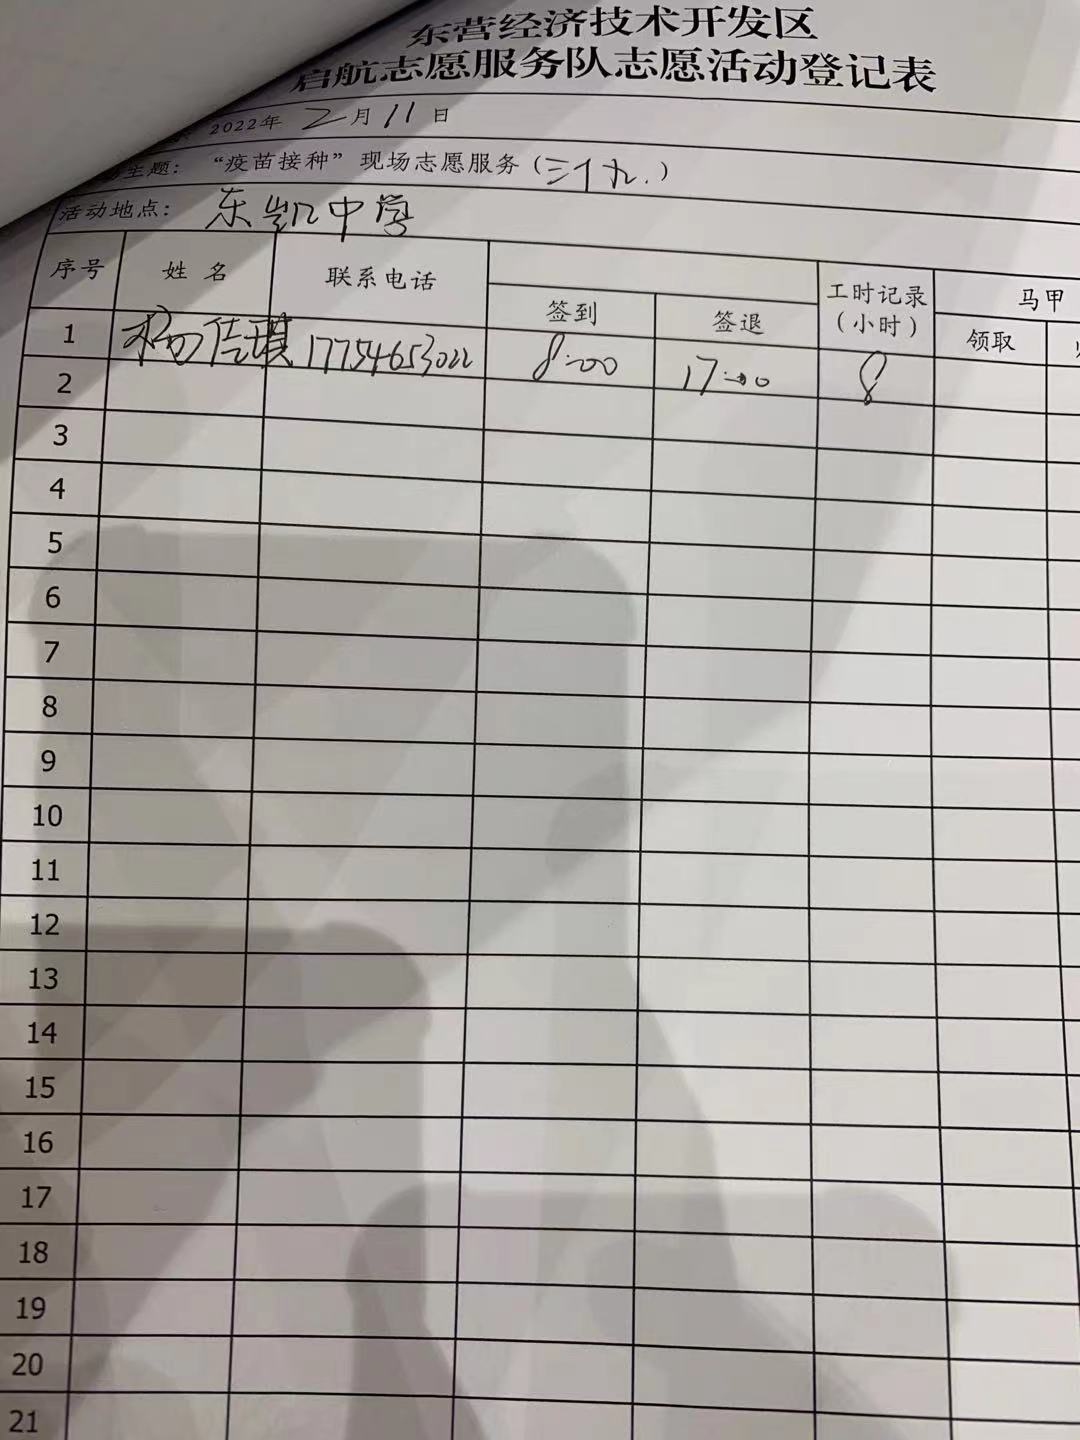 东营经济技术开发区
启航志愿服务队志愿活动登记表
2022年 2月11日
主题：“疫苗接种”现场志愿服务（三十九.）
活动地点：东凯中学
序号 姓名 联系电话 签到 签退 工时记录（小时） 马甲 领取
1 杨佳琪 17754653022 8:00 17:00 8
2
3
4
5
6
7
8
9
10
11
12
13
14
15
16
17
18
19
20
21